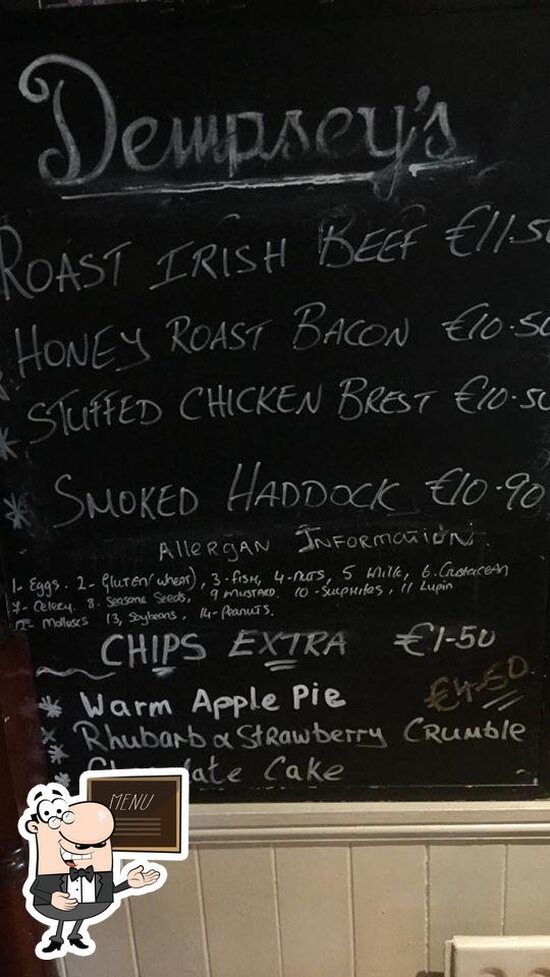 Dempsey's
ROAST IRISH BEEF €11.50
HONEY ROAST BACON €10.50
* STUFFED CHICKEN BREST €10.50
* SMOKED HADDOCK €10.90
Allergan Information
1- Eggs. 2- Gluten(wheat), 3-fish, 4-nuts, 5 Milk, 6. Crustacean
7- Celery. 8. Seasame Seeds, 9 Mustard. 10-Sulphites, 11 Lupin
12- Molluscs 13, Soybeans, 14-Peanuts.
CHIPS EXTRA €1-50
* Warm Apple Pie €4-50
* Rhubarb & Strawberry Crumble
* Chocolate Cake
MENU